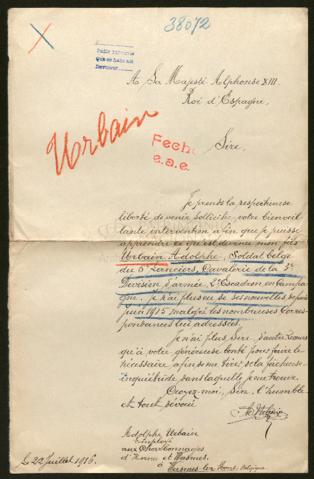 38072
A Sa Majesté Alphonse XIII
Roi d'Espagne,
Urbain
Fech
e.a.e.
Sire,
Je prends la respectueuse
liberté de venir solliciter votre bienveil
lante intervention afin que je puisse
apprendre ce qu'est devenu mon fils
Urbain Adolphe, Soldat belge
du 5e Lanciers, Cavalerie de la
Division d'armée, Escadron en campa
gne. Je n'ai plus eu de ses nouvelles depuis
juin 1915 malgré les nombreuses corres-
pondances lui adressées.
Je n'ai plus Sire, d'autre recours
qu'à votre généreuse bonté pour faire le
nécessaire afin de me tirer de la fâcheuse
inquiétude dans laquelle je me trouve.
Croyez-moi, Sire, l'humble
et tout dévoué
Adolphe Urbain
Employé
aux Charbonnages
d'Hornu et Wasmes
à
Wasmes-lez-Mons, Belgique
Le 22 Juillet 1916.